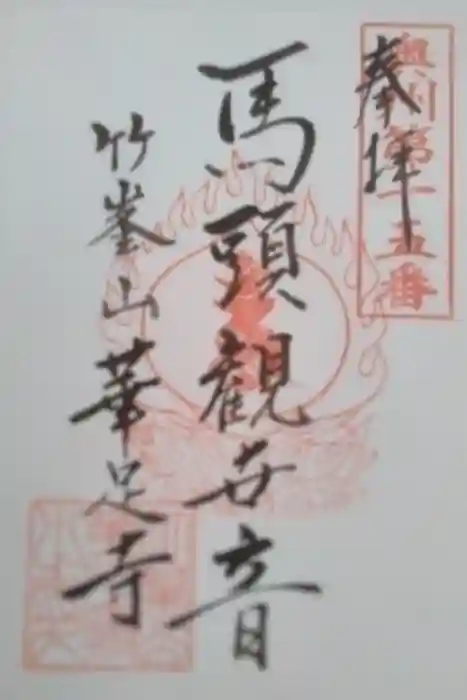 奉拝
奥州第十五番
馬頭観世音
竹峯山華足寺